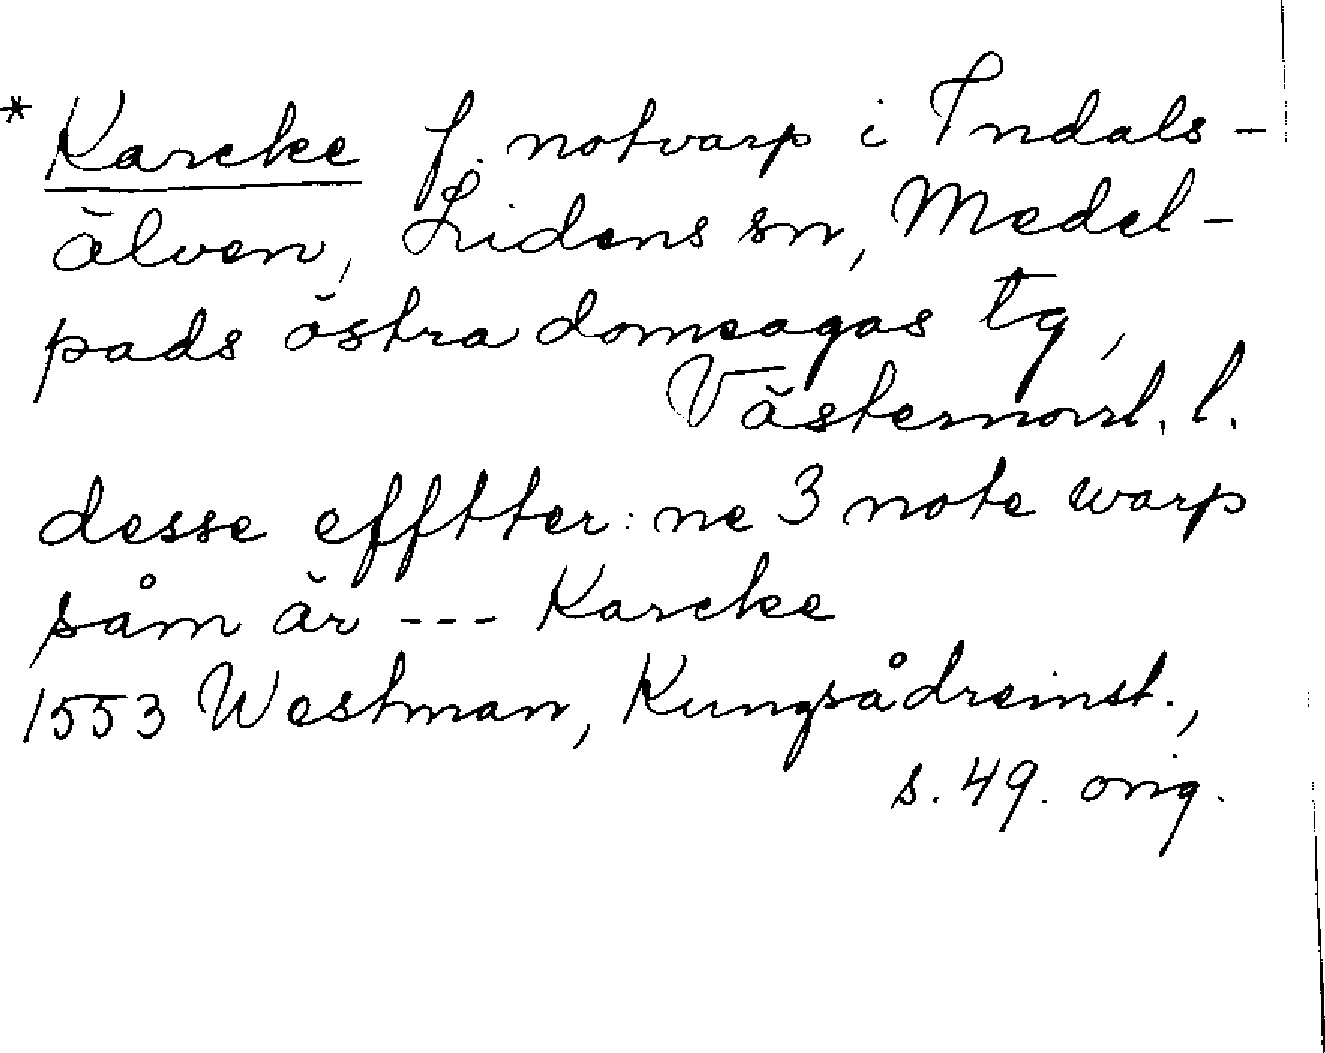 * Karcke f. notvarp i Indals-
älven, Lidens sn, Medel-
pads östra domsagas tg,
Västernorrl. l.
desse efftter: ne 3 note warp
såm är --- Karcke
1553 Westman, Kungsådreinst.,
s. 49. orig.